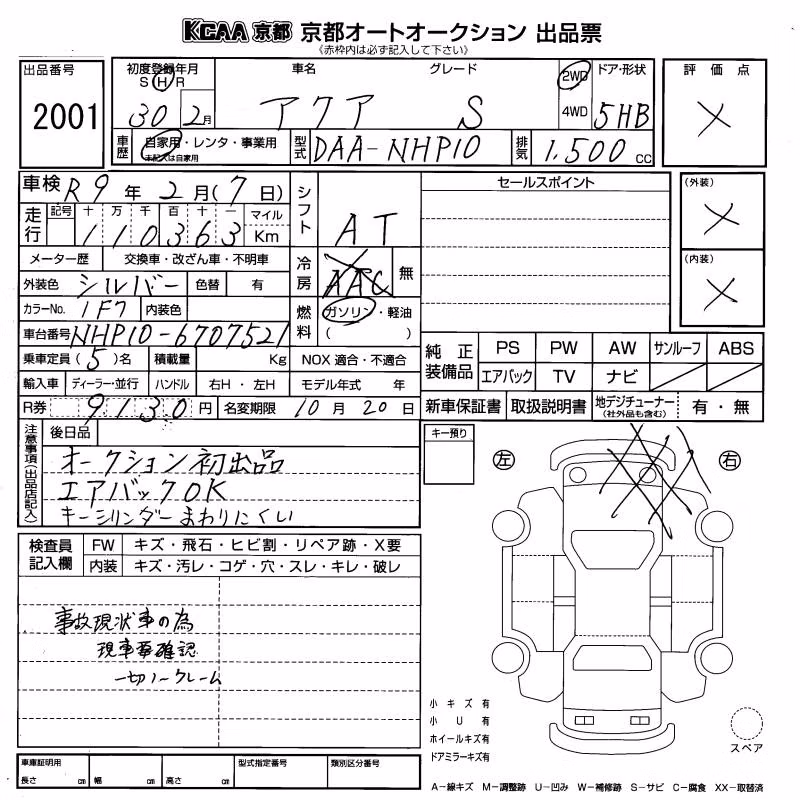 KCAA 京都 京都オートオークション 出品票
《赤枠内は必ず記入して下さい》
出品番号
2001
初度登録年月 車名 グレード ドア・形状
S H R
30 2月 アクア S 2WD 4WD 5HB
車歴 自家用・レンタ・事業用 型式 DAA-NHP10 排気 1,500 cc
未記入は自家用
評価点
X
車検 R9年 2月(7日)
走行 記号 十 万 千 百 十 一 マイル
110363 Km
シフト AT
メーター歴 交換車・改ざん車・不明車
冷房 AAC 無
外装色 シルバー 色替 有
カラーNo. 1F7 内装色
燃料 ガソリン・軽油
( )
車台番号 NHP10-6707521
乗車定員(5)名 積載量 Kg NOX適合・不適合
輸入車 ディーラー・並行 ハンドル 右H・左H モデル年式 年
R券 9130円 名変期限 10月20日
セールスポイント
(外装)
X
(内装)
X
純正装備品 PS PW AW サンルーフ ABS
エアバック TV ナビ
新車保証書 取扱説明書 地デジチューナー 有・無
(社外品も含む)
注意事項(出品店記入) 後日品
オークション初出品
エアバックOK
キーシリンダーまわりにくい
キー預り
左 右
検査員記入欄 FW キズ・飛石・ヒビ割・リペア跡・X要
内装 キズ・汚レ・コゲ・穴・スレ・キレ・破レ
事故現状車の為
現車要確認
一切ノークレーム
小キズ有
小U有
ホイールキズ有
ドアミラーキズ有
スペア
車庫証明用 型式指定番号 類別区分番号
長さ cm 幅 cm 高さ cm
A―線キズ M―調整跡 U―凹み W―補修跡 S―サビ C―腐食 XX―取替済